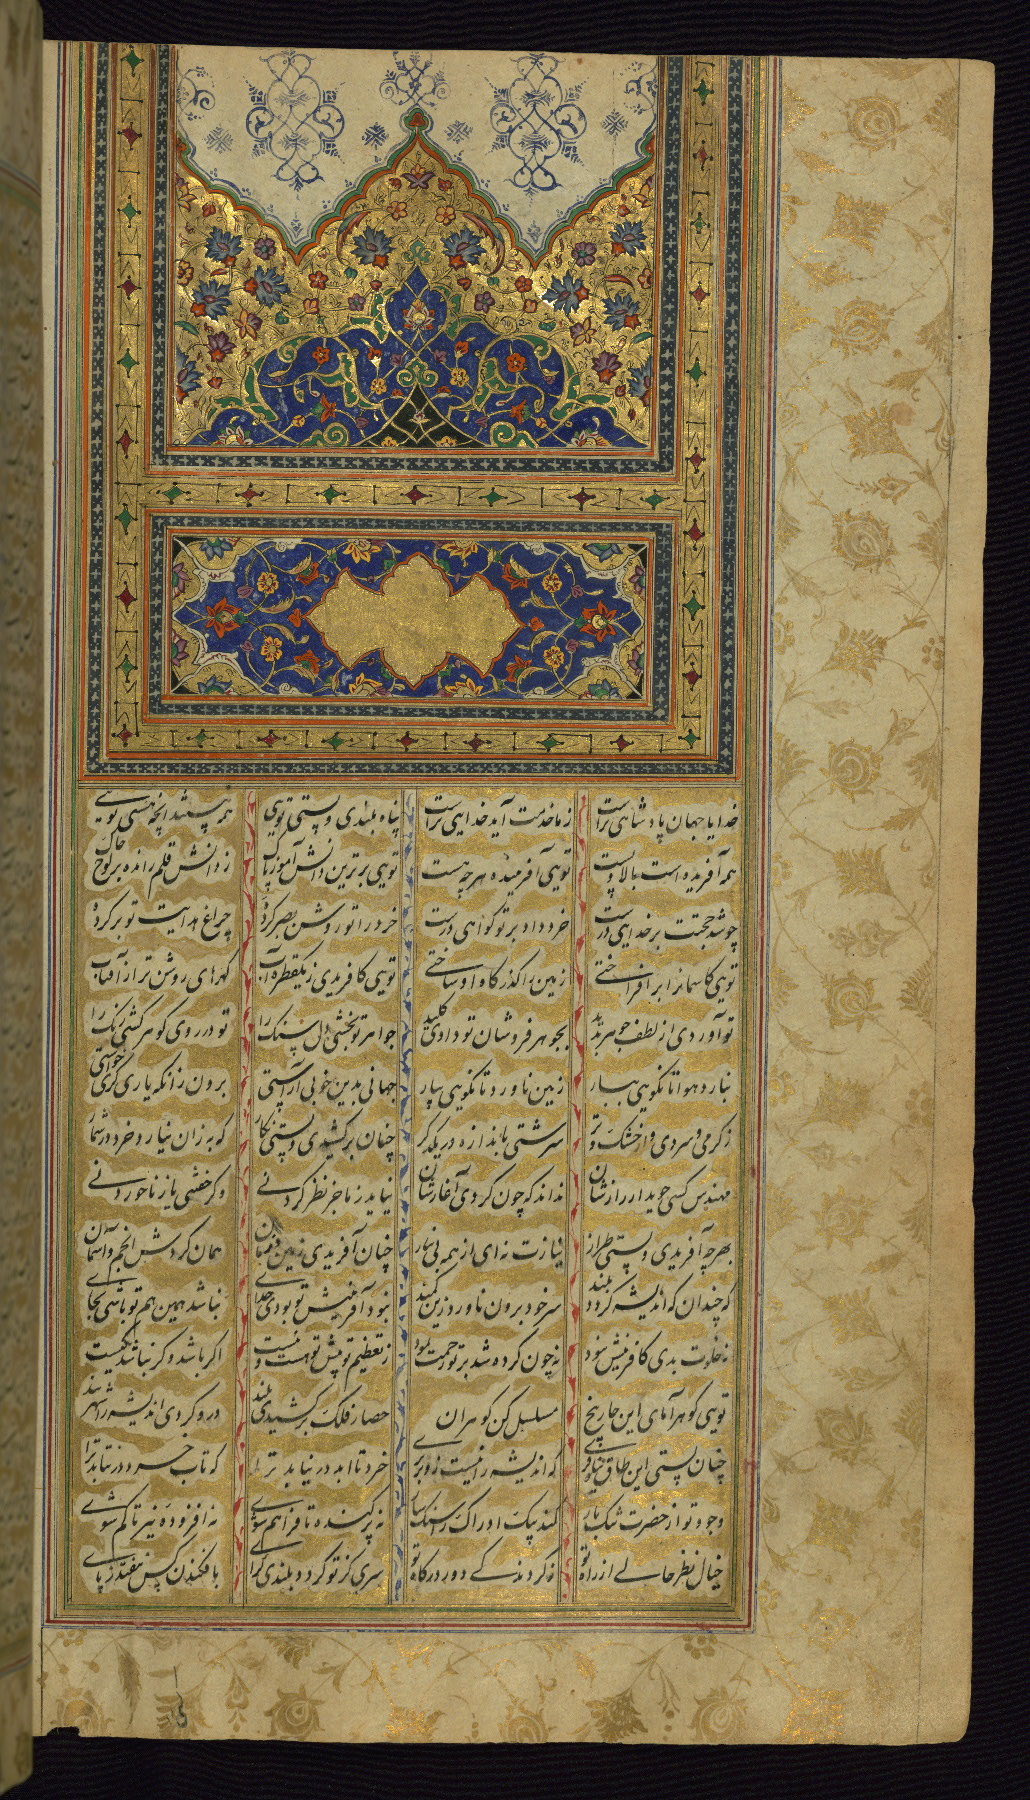 خدایا جهان پادشاهی تراست ز ما خدمت آید خدایی تراست پناه بلندی و پستی تویی همه نیستند آنچه هستی تویی
همه آفریده است بالا و پست تویی آفرینندهٔ هرچه هست تویی برترین دانش‌آموز پاک ز دانش قلم رانده بر لوح خاک
چو شد حجتت بر خدایی درست خرد داد بر تو گواهی درست خرد را تو روشن بصر کردهٔ چراغ هدایت تو بر کردهٔ
تویی کاسمانرا برافراختی زمین را گذرگاه او ساختی تویی کافریدی ز یکقطره آب گهرهای روشن‌تر از آفتاب
تو آوردی از لطف جوهر پدید بجوهرفروشان تو دادی کلید جواهر تو بخشی دل سنگ را تو در روی گوهر کشی رنگ را
نبارد هوا تا نگویی ببار زمین ناورد تا نگویی بیار جهانی بدین خوبی آراستی برون زانکه یاری گری خواستی
ز گرمی و سردی و از خشک و تر سرشتی باندازه در یکدگر چنان برکشیدی و بستی نگار که به زان نیارد خرد در شمار
مهندس کسی جوید از رازشان نداند که چون کردی آغازشان نیاید ز ما جز نظر کردنی وگر خفتنی یا ز نا خوردنی
بهرچه آفریدی و بستی طراز نیازت نه‌ای از همه بی‌نیاز چنان آفریدی زمین و زمان همان گردش انجم و آسمان
که چندان که اندیشه گردد بلند سر خود برون ناورد زین کمند نبود آفرینش تو بودی خدای نباشد همین هم تو باشی بجای
نه خلوت بدی کافرینش نبود نه چون کرده شد بر تو زحمت فزود ز تعظیم تو پیش تو هست و نیست اگر باشد و گر نباشد یکیست
تویی گوهر آمای این چار میخ مسلسل کن گوهران حصار فلک برکشیدی بلند درو کردی اندیشه را شهربند
چنان بستی این طاق نیلوفری که اندیشه را نیست زو برتری خرد تا ابد درنیابد ترا که تاب خرد برنتابد ترا
وجود تو از حضرت تنگ بار کند پیک ادراک را سنگسار نه پرکنده تا فراهم شوی نه افزوده نیز تا کم شوی
خیال نظر خالی از راه تو ز گردندگی دور درگاه تو سری کز تو گردد بلندی گرای بافکندن کس نیفتد ز پای